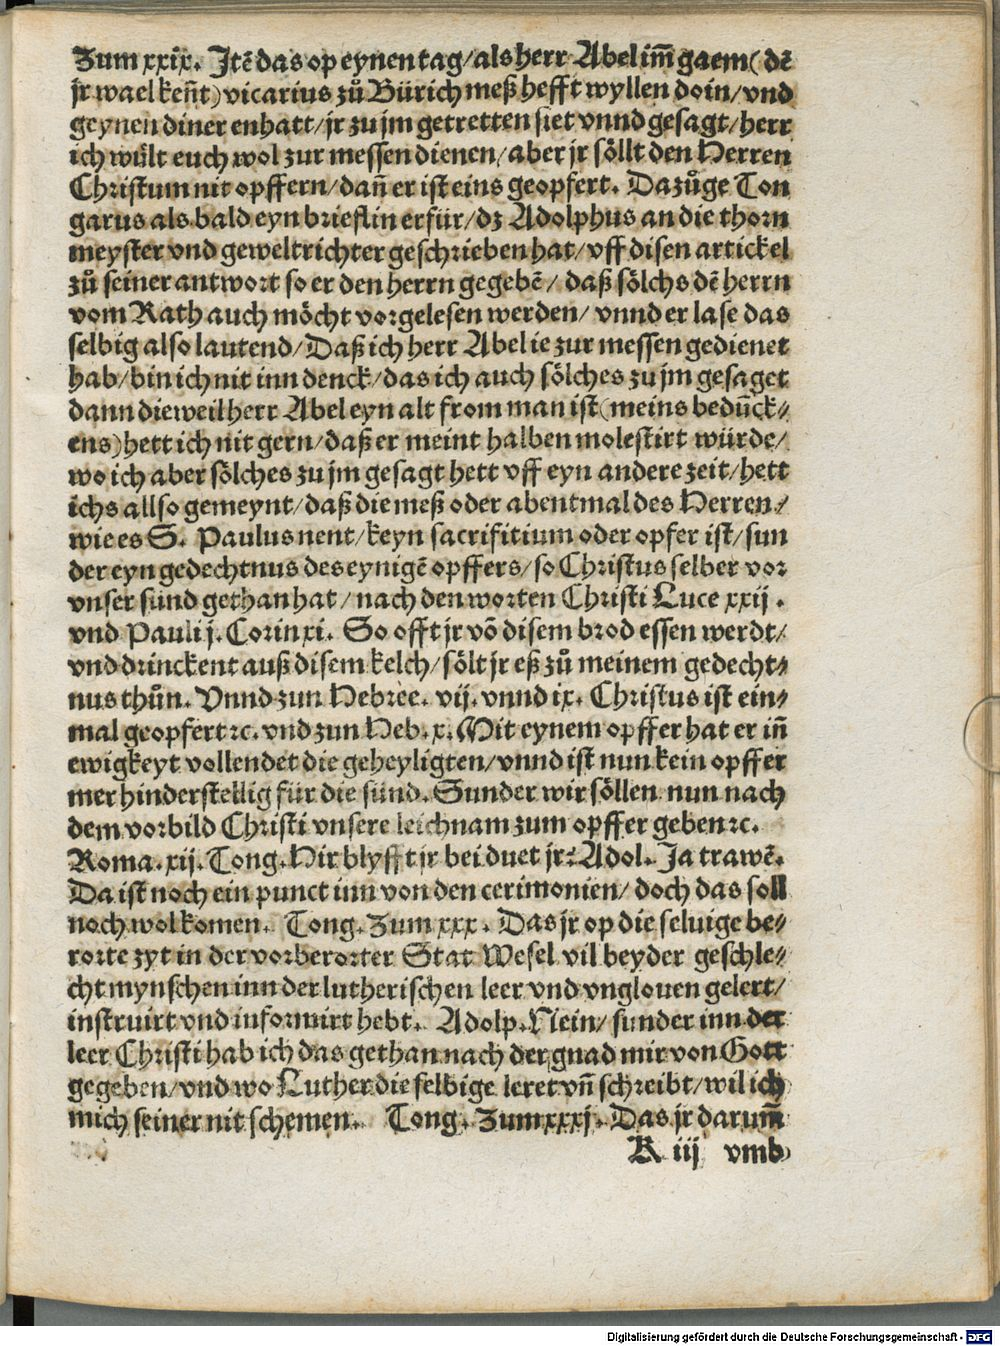 Zum xxix. Jtē das op eynen tag/als herr Abel im̄ gaem(dē
jr wael keñt)vicarius zů Bürich meß hefft wyllen doin/vnd
geynen diner enhatt/jr zu jm getretten siet vnnd gesagt/herr
ich wült euch wol zur messen dienen/aber jr söllt den Herren
Christum nit opffern/dañ er ist eins geopfert. Dazůge Ton
garus als bald eyn brieflin erfür/dz Adolphus an die thorn
meyster vnd geweltrichter geschrieben hat/vff disen artickel
zů seiner antwort so er den herrn gegebē/ daß sölchs dē herrn
vom Rath auch möcht vorgelesen werden/ vnnd er lase das
selbig also lautend/Daß ich herr Abel ie zur messen gedienet
hab/bin ich nit inn denck/das ich auch sölches zu jm gesaget
dann dieweil herr Abel eyn alt from man ist(meins bedūck⸗
ens)hett ich nit gern/daß er meint halben molestirt würde/
wo ich aber sölches zu jm gesagt hett vff eyn andere zeit/hett
ichs allso gemeynt/daß die meß oder abentmal des Herren/
wie es S. Paulus nent/keyn sacrifitium oder opfer ist/sun
der eyn gedechtnus des eynigē opffers/so Christus selber vor
vnser sünd gethan hat/nach den worten Christi Luce xxij.
vnd Pauli j. Corin xi. So offt jr vō disem brod essen werdt/
vnd drinckent auß disem kelch/sölt jr eß zů meinem gedecht⸗
nus thůn. Vnnd zun Hebree. vij. vnnd ix. Christus ist ein⸗
mal geopfert ⁊c. vnd zun Heb. x. Mit eynem opffer hat er iñ
ewigkeyt vollendet die geheyligten/vnnd ist nun kein opffer
mer hinderstellig für die sünd. Sunder wir söllen nun nach
dem vorbild Christi vnsere leichnam zum opffer geben ⁊c.
Roma. xij. Tong. Hir blyfft jr bei duet jr: Adol. Ja trawē.
Da ist noch ein punct inn von den cerimonien/ doch das soll
noch wol komen. Tong. Zum xxx. Das jr op die seluige be⸗
rorte zyt in der vorberorter Stat Wesel vil beyder geschle⸗
cht mynschen inn der lutherischen leer vnd vnglouen gelert/
instruirt vnd informirt hebt. Adolp. Nein/ sunder inn der
leer Christi hab ich das gethan nach der gnad mir von Gott
gegeben/vnd wo Luther die selbige leret vñ schreibt/wil ich
mich seiner nit schemen. Tong. Zum xxxj. Das jr darum̄
K iij vmb
Digitalisierung gefördert durch die Deutsche Forschungsgemeinschaft - DFG